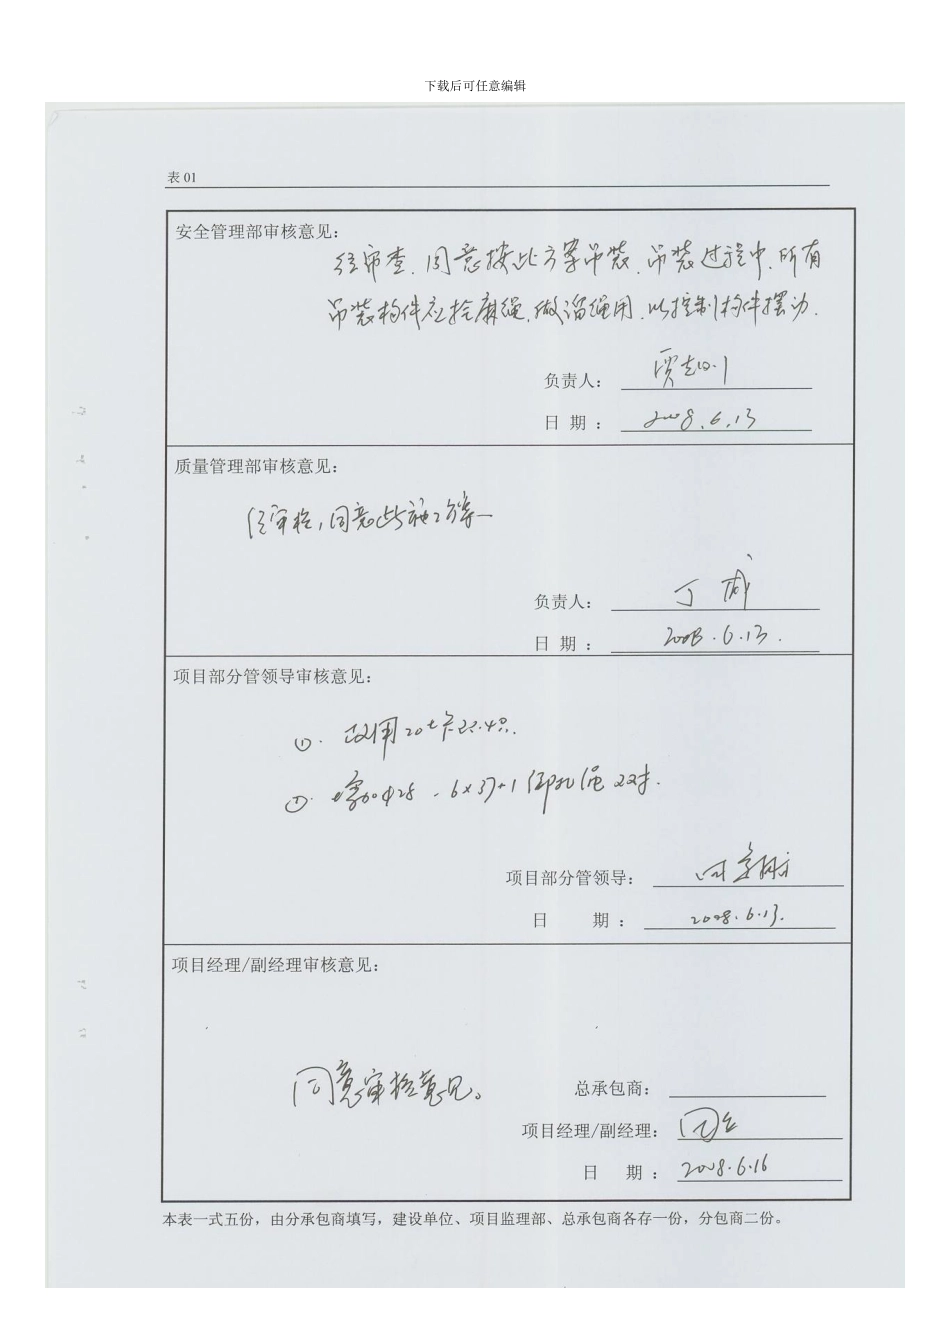 下载后可任意编辑
表 01
安全管理部审核意见:
经审查,同意按此方案吊装,吊装过程中,所有
吊装构件应拴麻绳,做溜绳用,以控制构件摆动.
负责人:
日 期 : 2008.6.13
质量管理部审核意见:
经审核,同意此施工方案
负责人: 丁威
日 期 : 2008.6.13.
项目部分管领导审核意见:
①. 改用20t卡环4只.
增加φ28 6×37+1
项目部分管领导:
日 期 : 2008.6.13.
项目经理/副经理审核意见:
同意审核意见。
总承包商:
项目经理/副经理:
日 期 : 2008.6.16
本表一式五份，由分承包商填写，建设单位、项目监理部、总承包商各存一份，分包商二份。